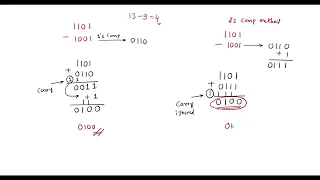 13-9=4
1101
- 1001 1's Comp 0110
1101
+ 0110
Carry 1 0011
+ 1
0100
0100
2's Comp method
1101
- 1001 0110
+ 1
0111
1101
+ 0111
Carry ignored 1 0100
01